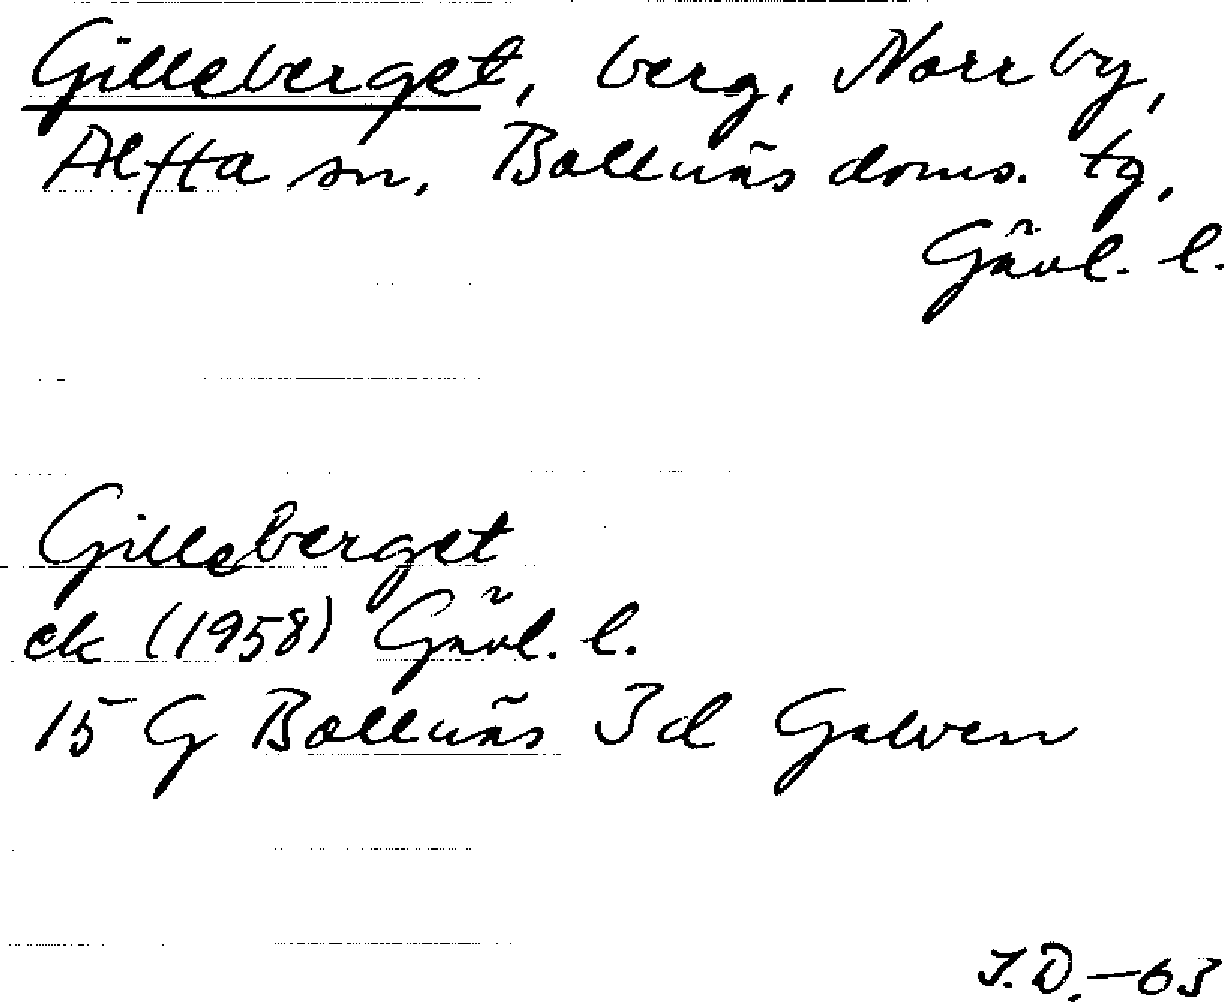 Gilleberget, berg, Norrby,
Alfta sn, Bollnäs doms. tg,
Gävl. l.
Gilleberget
ek (1958) Gävl. l.
15 G Bollnäs 3d Galven
I.D.-63